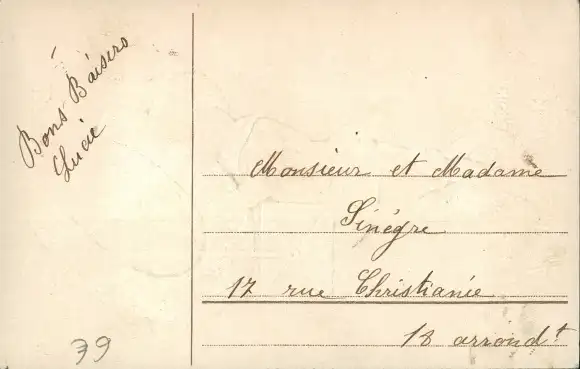 Bons Baisers
Lucie
Monsieur et Madame
Sinègre
17 rue Christianie
18 arrondt
79